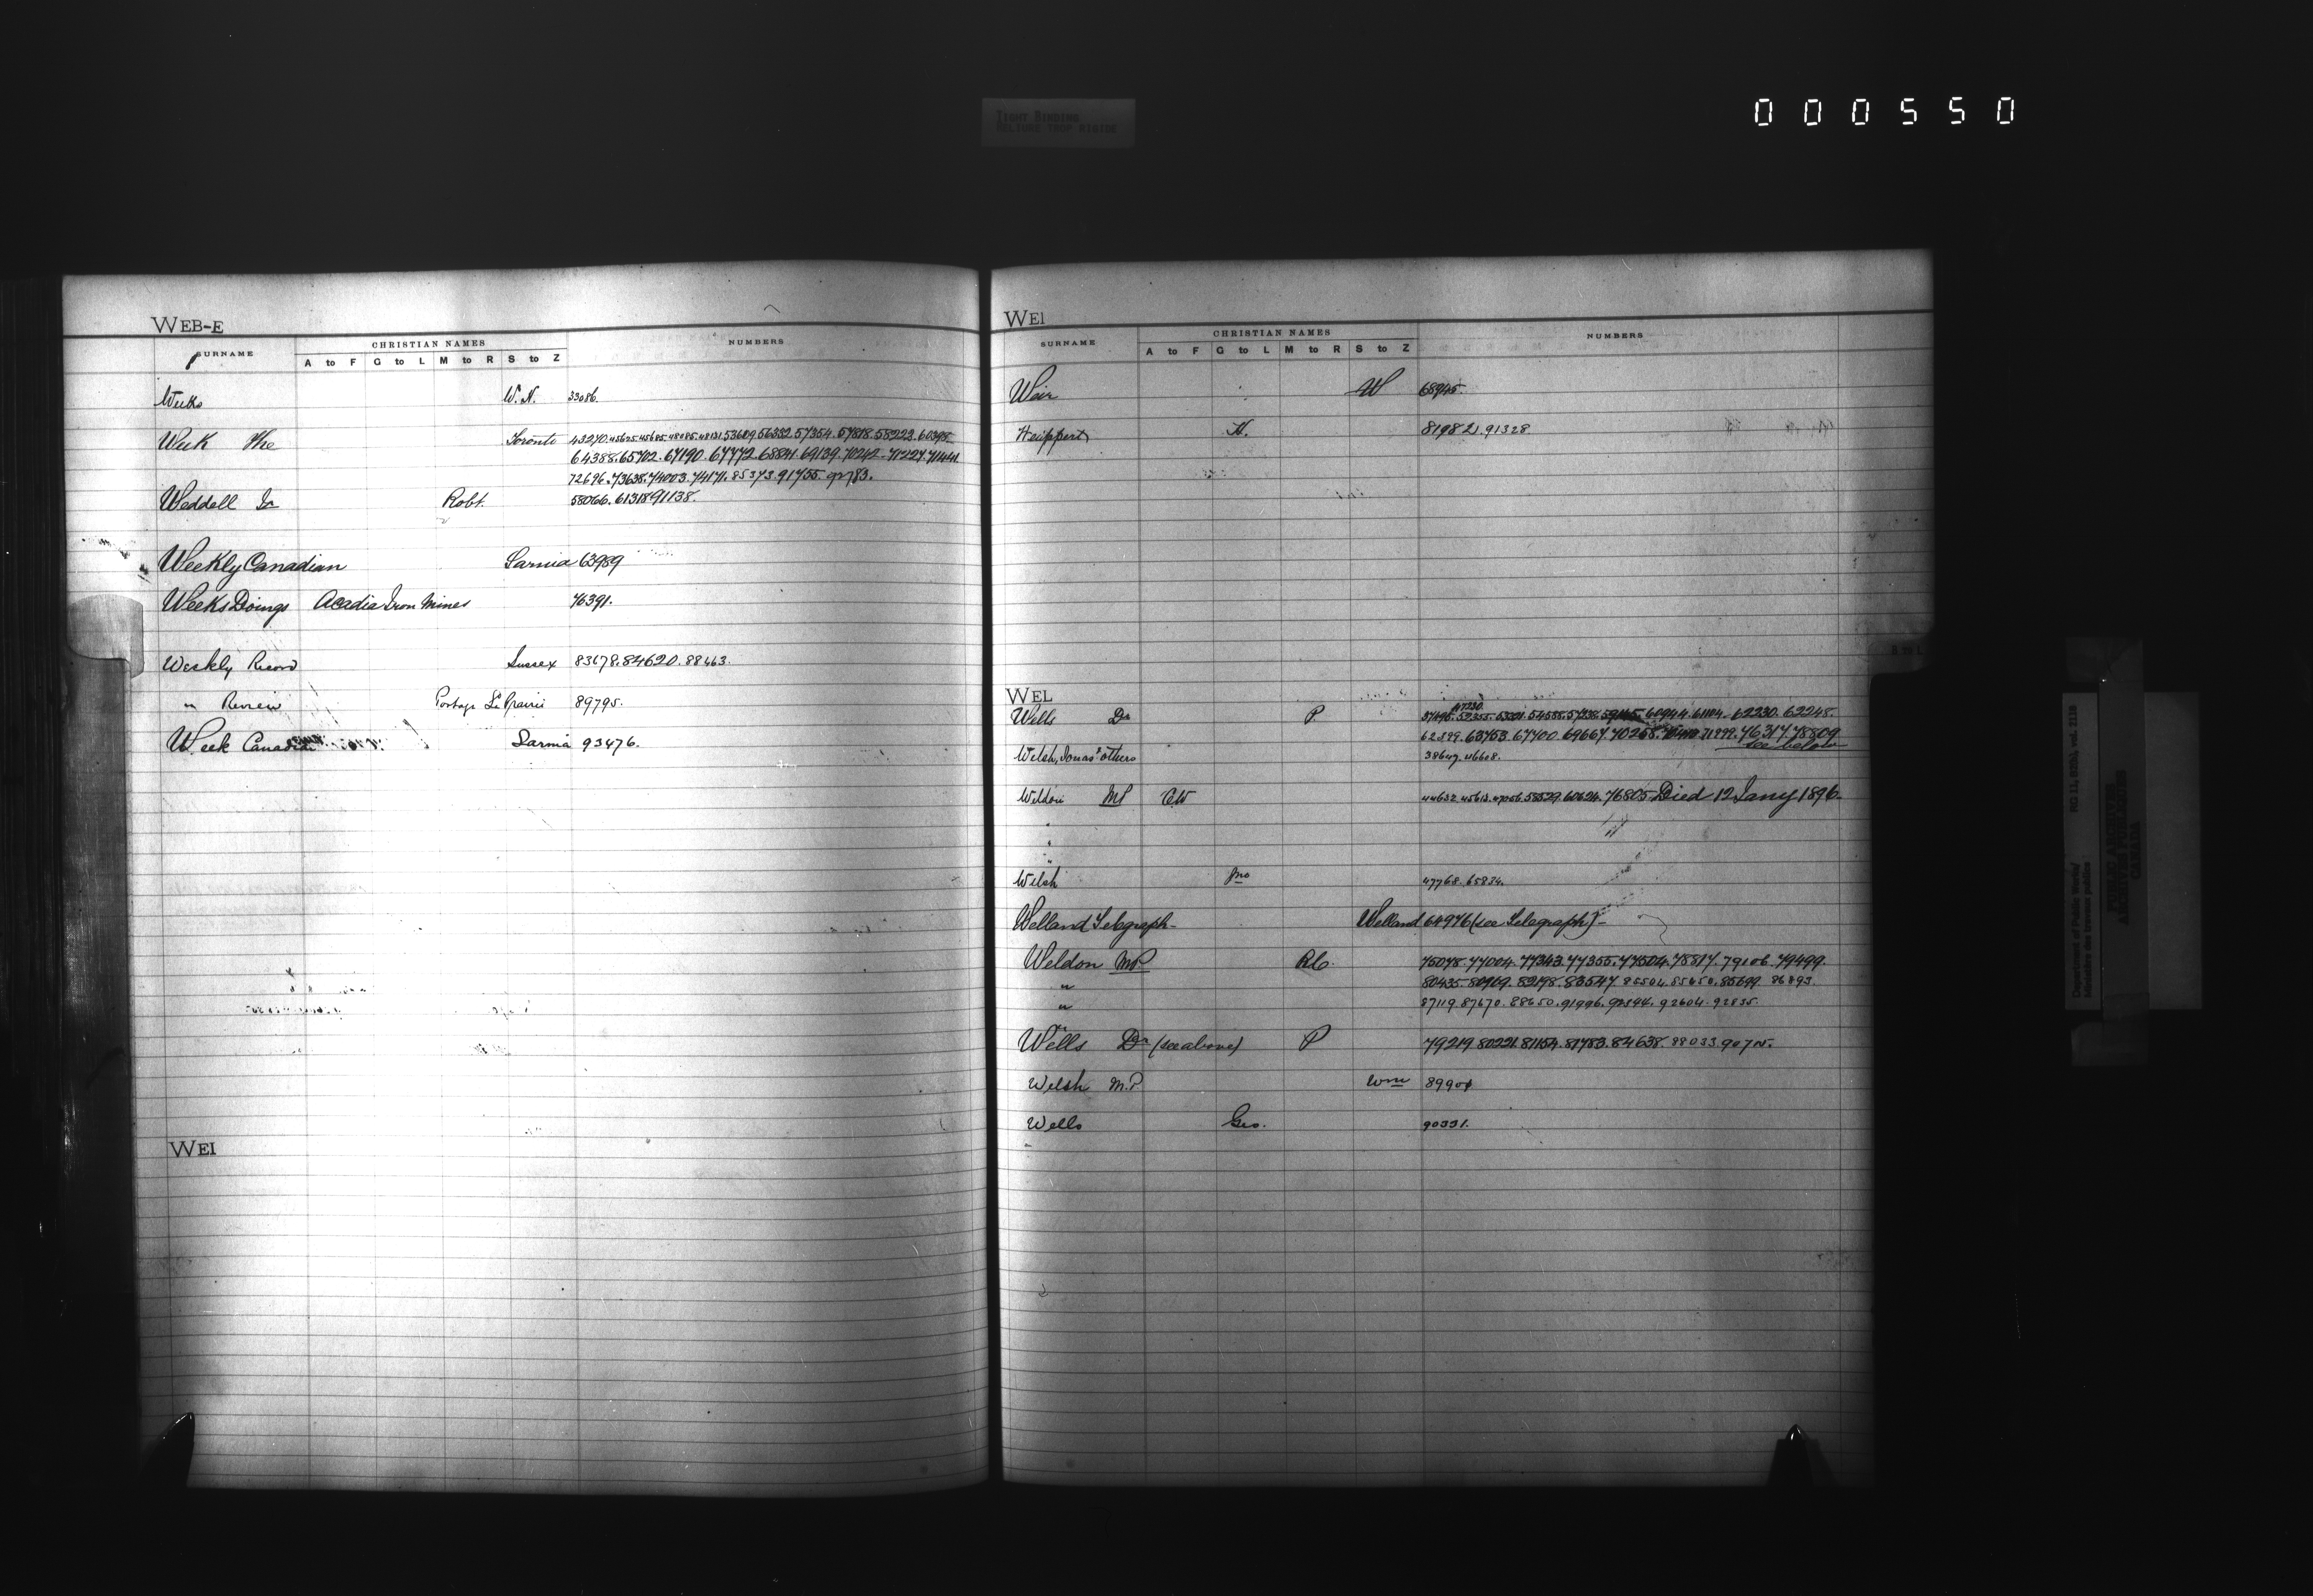 TIGHT BINDING
RELIURE TROP RIGIDE
000550
WEB-E
SURNAME CHRISTIAN NAMES NUMBERS
A to F G to L M to R S to Z
Weeks W. H. 33086.
Week The Toronto 43270.45625.45685.48085.48131.53609.56332.57354.57818.58223.60398.
64388.65702.67190.67772.68841.69139.70242.71227.71444
72696.73638.74003.74171.85373.91755.92783.
Weddell Jr Robt. 58066.61318.91138.
Weekly Canadian Sarnia 63989
Weeks Doings Acadia Iron Mines 76391.
Weekly Record Sussex 83678.84620.88463.
" Review Portage La Prairie 89795.
Week Canadian Sarnia 93476.
WEI
WEI
SURNAME CHRISTIAN NAMES NUMBERS
A to F G to L M to R S to Z
Weir W 68945.
Weippert H. 81982.91328
WEL
47330.
Wells Dr P. 52355. 54588. 60944.61104.62230.62248.
62899.63753.67400.69667.70258. 71999.76317.78809
see below
Welsh, Jonas & others 38647.46608.
Weldon MP C.W 44632.45613. 58529.60624.76805 Died 12 Jany 1896
Welsh Jno 47768.65834.
Welland Telegraph Welland 64976 (see Telegraph)
Weldon M.P. R.C. 75078.77004.77343.77355.77504.78817.79106.79499.
" 80435.80909.82198.83547.85504.85650.85699.86893.
" 87119.87670.88650.91996.92394.92604.92835.
Wells Dr (see above) P 79219.80221.81154.81783.84638.88033.90705.
Welsh M.P. Wm 89904
Wells Geo. 90331.
Department of Public Works/
Ministère des travaux publics
RG 11, B2(b), vol. 2118
PUBLIC ARCHIVES
ARCHIVES PUBLIQUES
CANADA